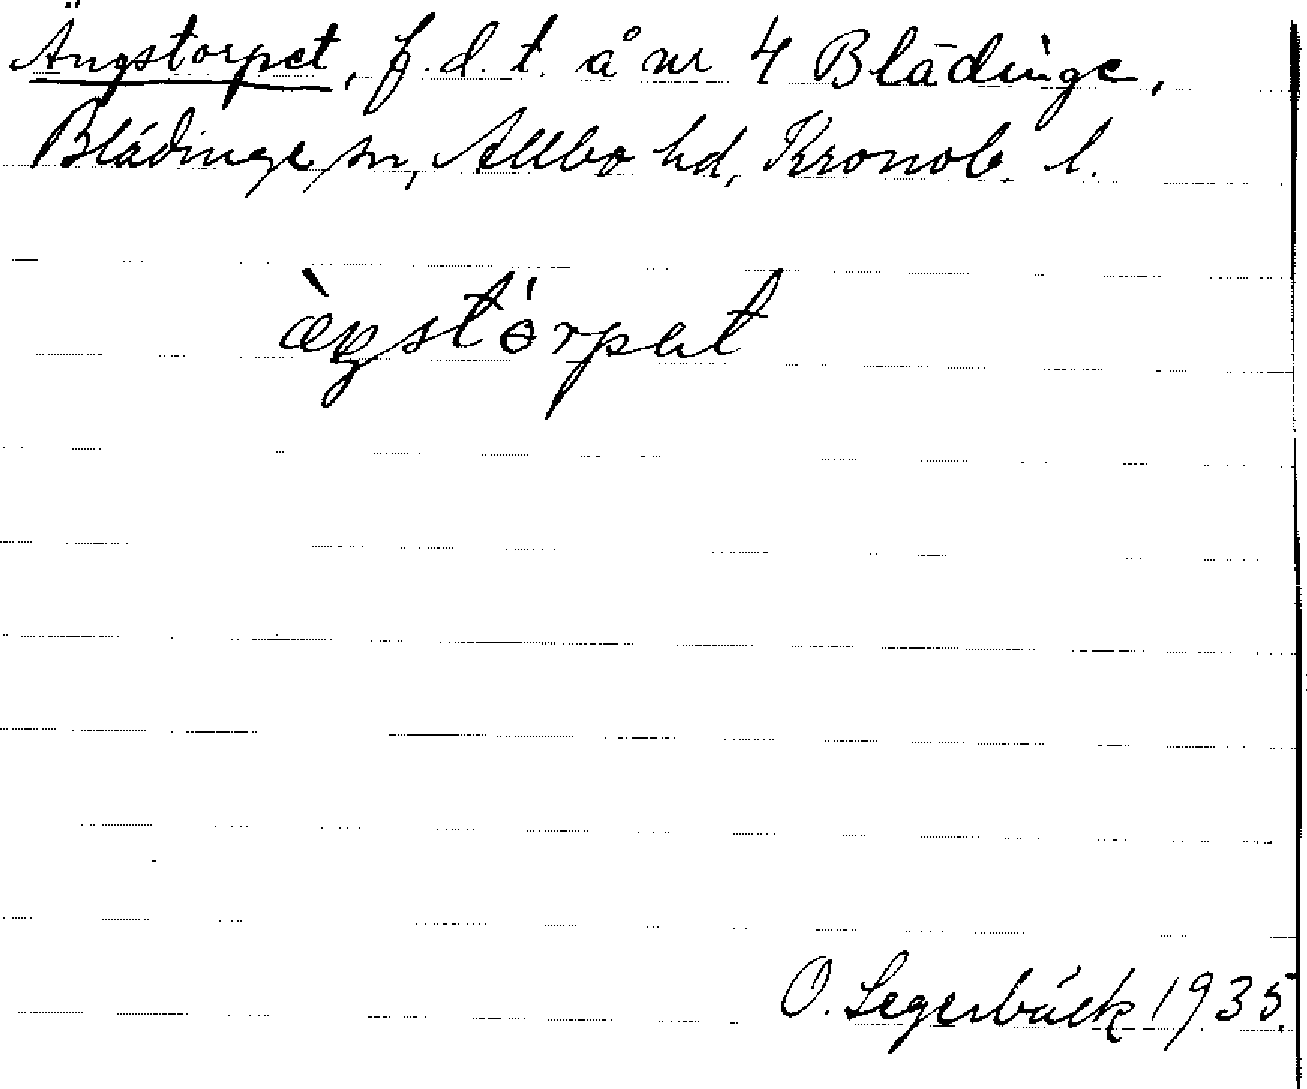 Ängstorpet, f.d. t. å nr 4 Blädinge,
Blädinge sn, Allbo hd, Kronob. l.
æ̀ŋstɵ́rpət
O. Segerbäck 1935.